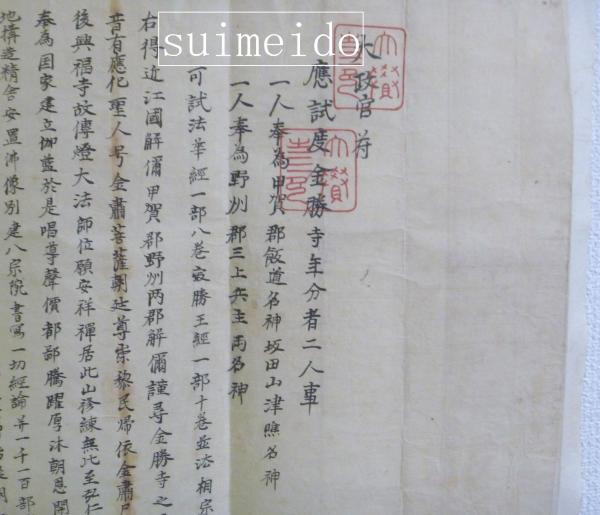 suimeido
太政官符
應試度金勝寺年分者二人事
一人奉為甲賀郡飯道名神坂田山津照名神
一人奉為野州郡三上兵主両名神
可試法華經一部八巻最勝王經一部十巻並法相宗
右得近江國解偁甲賀郡野州両郡解偁謹尋金勝寺之
昔有應化聖人号金肅菩薩朝廷尊崇黎民歸依金肅
後興福寺故傳燈大法師位願安祥禪居此山修練無比至弘仁
奉為国家建立伽藍於是唱尊聲價都鄙騰躍厚沐朝恩開
地構造精舎安置佛像別建八宗院書寫一切經論并一千一百部